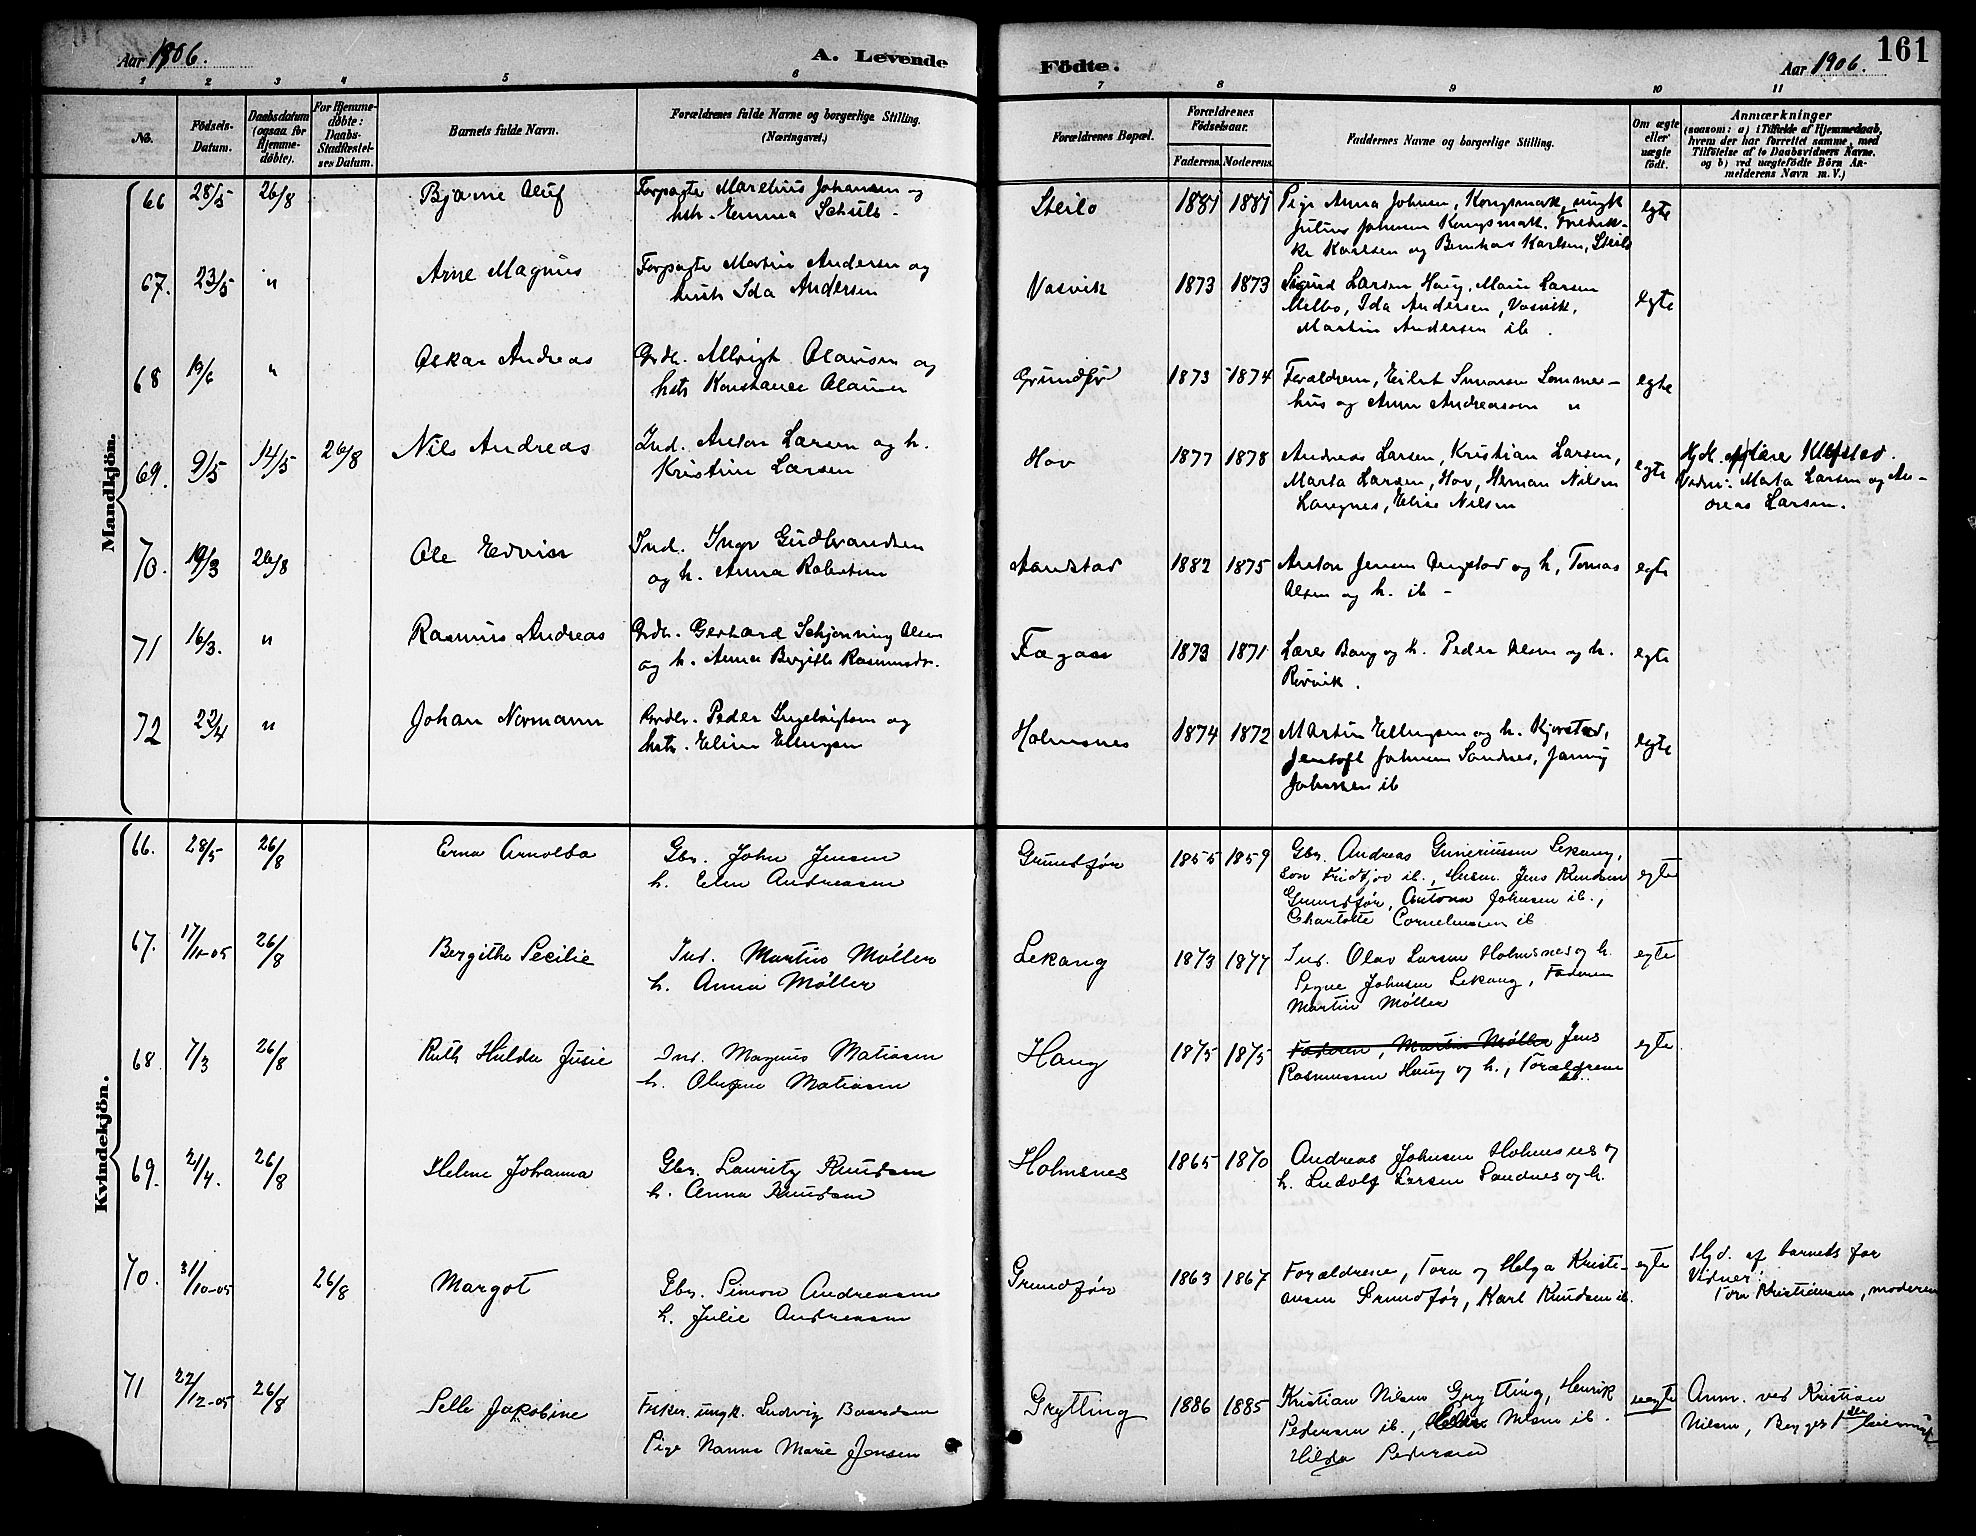 Aar 1906.
A. Levende Födte.
Aar 1906.
161
1 2 3 4 5 6 7 8 9 10 11
No.
Födsels-
Datum.
Daabsdatum
(ogsaa for
Hjemme-
døbte).
For Hjemme-
døbte:
Daabs-
Stadfæstel-
ses Datum.
Barnets fulde Navn.
Forældrenes fulde Navne og borgerlige Stilling.
(Næringsvei.)
Forældrenes Bopæl.
Forældrenes
Födselsaar.
Faderens. Moderens.
Faddernes Navne og borgerlige Stilling.
Om ægte
eller
uægte
födt.
Anmærkninger
(saasom: a) i Tilfælde af Hjemmedaab,
hvem der har forrettet samme, med
Tilföielse af to Daabsvidners Navne,
og b) ved uægtefödte Börn An-
melderens Navn m. V.)
Mandkjön.
66 28/5 26/8 Bjarne Oluf
Forpagter Marelius Johansen og
hstr. Emma Schuls.
Steilo 1881 1881
Pige Anna Johnsen, Kongsmark, ungk
Julius Johnsen Kongsmark. Fredrik-
ke Karlsen og Bernhar Karlsen, Steilo
egte
67. 23/5 " Arne Magnus
Forpagter Martin Andersen og
hustr Ida Andersen
Vasvik 1873 1873
Sigurd Larsen Haug, Marie Larsen
Melbo, Ida Andersen, Vasvik,
Martin Andersen ib.
egte
68 19/6 " Oskar Andreas
Grdb. Albrigt Olausen og
hstr Konstance Olausen
Grundfør 1873 1874
Forældrene, Eilert Simonsen Sommer-
hus og Anna Andreassen "
egte
69. 9/5 14/5 26/8 Nils Andreas
Ind. Anton Larsen og h.
Kristine Larsen
Hov 1877 1878
Andreas Larsen, Kristian Larsen,
Marta Larsen, Hov, Herman Nilsen
Laugnes, Elise Nilsen
egte
Hjd. af Lærer Klefstad.
Vidner: Marta Larsen og An-
dreas Larsen.
70. 19/3 26/8 Ole Edvin
Ind. Ingv Gudbrandsen
og h. Anna Robertine
Aandstad 1882 1875
Anton Jensen Ongstad og h, Tomas
Olsen og h. ib -
egte
71 16/3. " Rasmus Andreas
Grdb. Gerhard Schjønning Olsen
og h. Anna Bergitte Rasmusdr.
Fagaas 1873 1871
Lærer Bang og h. Peder Olsen og h.
Rørvik.
egte
72 22/4 " Johan Normann
Grdbr. Peder Ingebrigtsen og
hstr. Eline Ellingsen
Holmsnes 1874 1872
Martin Ellingsen og h. Kjorstad,
Jentoft Johnsen Sandnes, Janny
Johnsen ib
egte
Kvindekjön.
66. 28/5 26/8 Erna Arnolda
Gbr. John Jensen
h. Elen Andreassen
Grundfør 1855 1859
Gbr. Andreas Guneriussen Lekang,
Søn Fridtjov ib., Husm. Jens Knudsen
Grundfør, Antona Johnsen ib.,
Charlotte Corneliussen ib
egte
67. 17/11-05 26/8 Bergithe Cecilie
Ind. Martin Møller
h. Anna Møller
Lekang 1873 1877
Ind. Olav Larsen Holmsnes og h.
Signe Johnsen Lekang, Faderen
Martin Møller
egte
68 7/3 26/8 Ruth Hulda Jusie
Ind. Magnus Matiasen
h. Olufine Matiasen
Haug 1875 1875
Faderen, Martin Møller Jens
Rasmussen Haug og h., Forældrene
ib.
egte
69. 21/4. 26/8 Helene Johanna
Gbr. Lauritz Knudsen
h. Anna Knudsen
Holmsnes 1865 1870
Andreas Johnsen Holmsnes og
h. Ludolf Larsen Sandnes og h.
70. 31/10-05 26/8 Margot
Gbr. Simon Andreassen
h. Julie Andreassen
Grundfør 1863 1867
Forældrene, Tora og Helga Kristi-
ansen Grundfør, Karl Knudsen ib.
egte
Hjd. af barnets far
Vidner:
Tora Kristiansen, moderen
71 22/12-05 26/8 Selle Jakobine
Fisker. ungk. Ludvig Baardsen
Pige Nanna Marie Jensen
Grytting 1886 1885
Kristian Nilsen Grytting, Henrik
Pedersen ib., Nilsen ib.
Hilda Pedersen
uægte
Anm. ved Kristian
Nilsen, Begges 1ste leiermaal